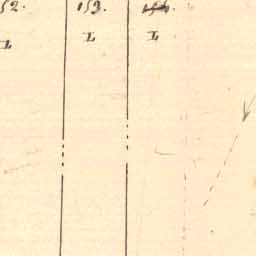 52. 153. 154.
L L L